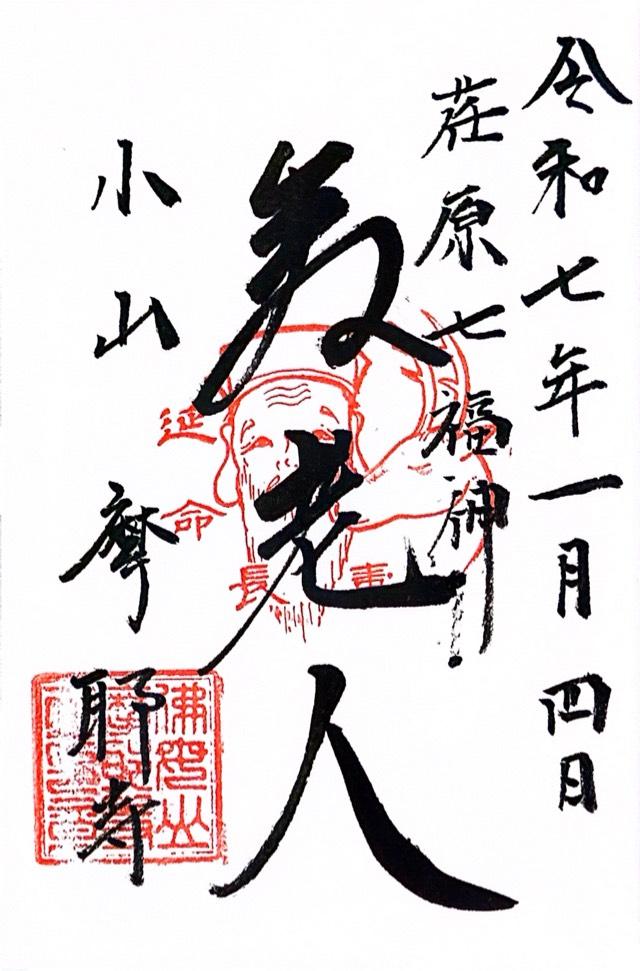 令和七年一月四日
荏原七福神
寿老人
小山 摩耶寺
延命
長寿
佛母山